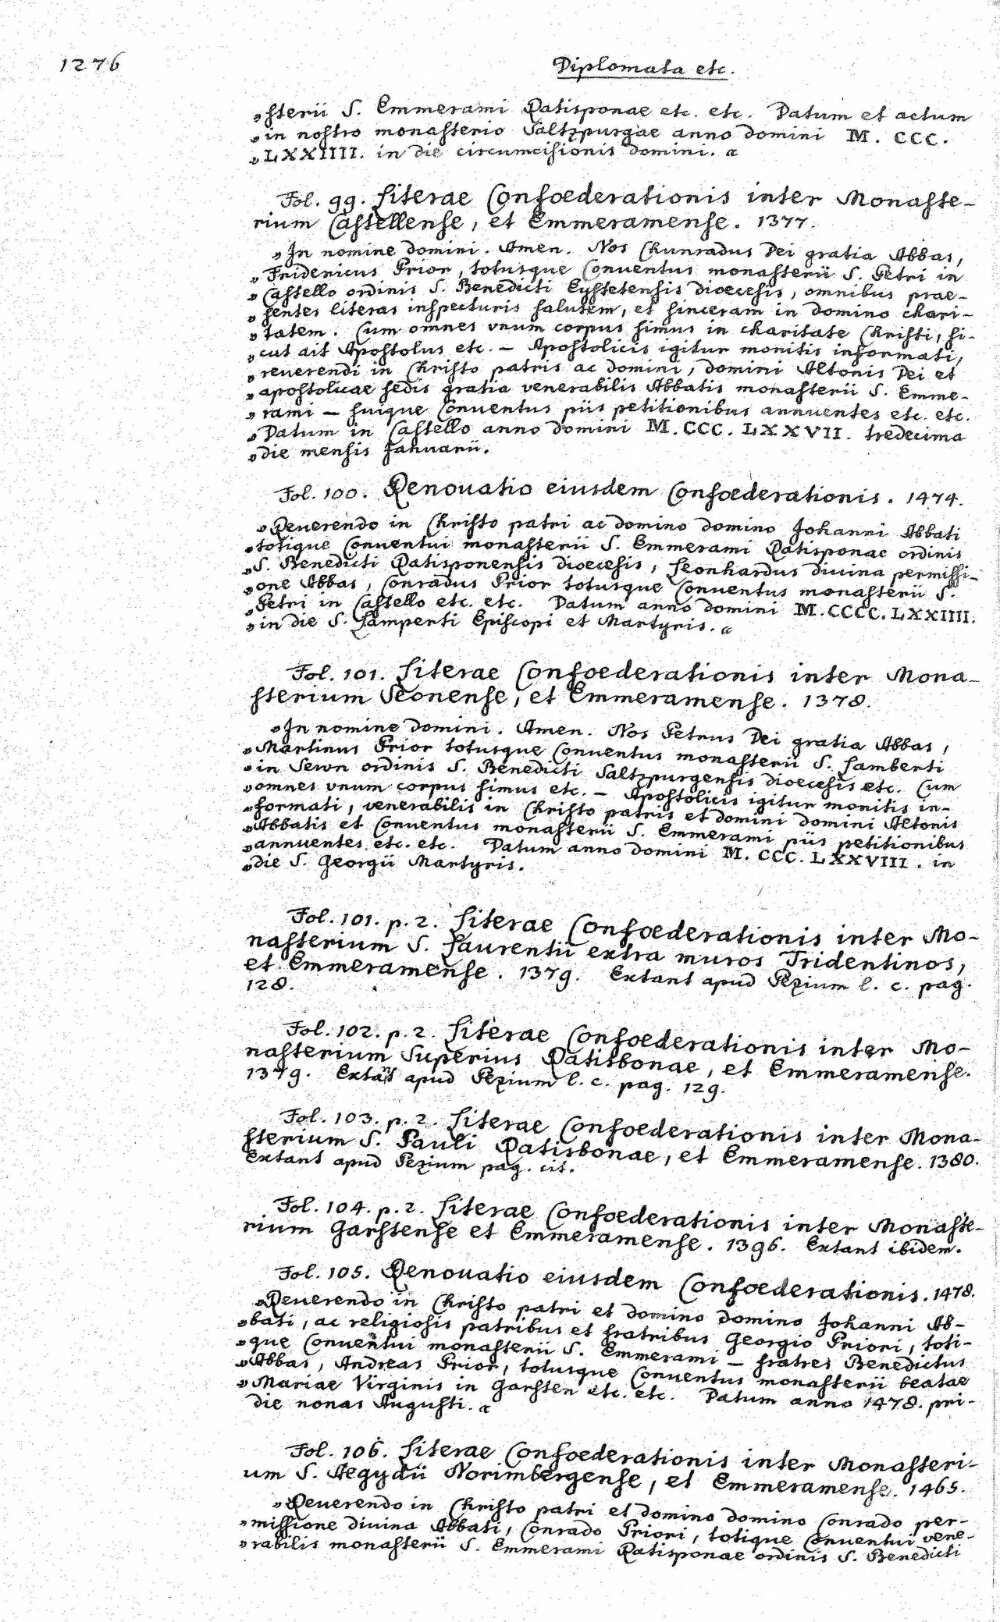 1276
Diplomata etc.
„sterii S. Emmerami Ratisponae etc. etc. Datum et actum
„in nostro monasterio Saltzpurgae anno domini M. CCC.
„LXXIIII. in die circumcisionis domini. a
Fol. 99. Literae Confoederationis inter Monaste-
rium Castellense, et Emmeramense. 1377.
„In nomine domini. Amen. Nos Chunradus Dei gratia Abbas,
„Fridericus Prior, totusque Conuentus monasterii S. Petri in
„Castello ordinis S. Benedicti Eystetensis dioecesis, omnibus prae-
„sentes literas inspecturis salutem, et sinceram in domino chari-
„tatem. Cum omnes vnum corpus simus in charitate Christi, si-
„cut ait Apostolus etc. — Apostolicis igitur monitis informati,
„reuerendi in Christo patris ac domini, domini Altonis Dei et
„apostolicae sedis gratia venerabilis Abbatis monasterii S. Emme-
„rami — suique Conuentus piis petitionibus annuentes etc. etc.
„Datum in Castello anno domini M. CCC. LXXVII. tredecima
„die mensis Januarii.
Fol. 100. Renouatio eiusdem Confoederationis. 1474.
„Reuerendo in Christo patri ac domino domino Johanni Abbati
„totique Conuentui monasterii S. Emmerami Ratisponae ordinis
„S. Benedicti Ratisponensis dioecesis, Leonhardus diuina permissi-
„one Abbas, Conradus Prior totusque Conuentus monasterii S.
„Petri in Castello etc. etc. Datum anno domini M. CCCC. LXXIIII.
„in die S. Lamperti Episcopi et Martyris. a
Fol. 101. Literae Confoederationis inter Mona-
sterium Seonense, et Emmeramense. 1378.
„In nomine domini. Amen. Nos Petrus Dei gratia Abbas,
„Martinus Prior totusque Conuentus monasterii S. Lamberti
„in Sewn ordinis S. Benedicti Saltzpurgensis dioecesis etc. Cum
„omnes vnum corpus simus etc. — Apostolicis igitur monitis in-
„formati, venerabilis in Christo patris et domini domini Altonis
„Abbatis et Conuentus monasterii S. Emmerami piis petitionibus
„annuentes etc. etc. Datum anno domini M. CCC. LXXVIII. in
„die S. Georgii Martyris.
Fol. 101. p. 2. Literae Confoederationis inter Mo-
nasterium S. Laurentii extra muros Tridentinos,
et Emmeramense. 1379. Extant apud Pezium l. c. pag.
128.
Fol. 102. p. 2. Literae Confoederationis inter Mo-
nasterium Superius Ratisbonae, et Emmeramense.
1379. Extant apud Pezium l. c. pag. 129.
Fol. 103. p. 2. Literae Confoederationis inter Mona-
sterium S. Pauli Ratisbonae, et Emmeramense. 1380.
Extant apud Pezium pag. cit.
Fol. 104. p. 2. Literae Confoederationis inter Monaste-
rium Garstense et Emmeramense. 1396. Extant ibidem.
Fol. 105. Renouatio eiusdem Confoederationis. 1478.
„Reuerendo in Christo patri et domino domino Johanni Ab-
„bati, ac religiosis patribus et fratribus Georgio Priori, toti-
„que Conuentui monasterii S. Emmerami — fratres Benedictus
„Abbas, Andreas Prior, totusque Conuentus monasterii beatae
„Mariae Virginis in Garsten etc. etc. Datum anno 1478. pri-
die nonas Augusti. a
Fol. 106. Literae Confoederationis inter Monasteri-
um S. Aegydii Norimbergense, et Emmeramense. 1465.
„Reuerendo in Christo patri et domino domino Conrado per-
„missione diuina Abbati, Conrado Priori, totique Conuentui vene-
„rabilis monasterii S. Emmerami Ratisponae ordinis S. Benedicti